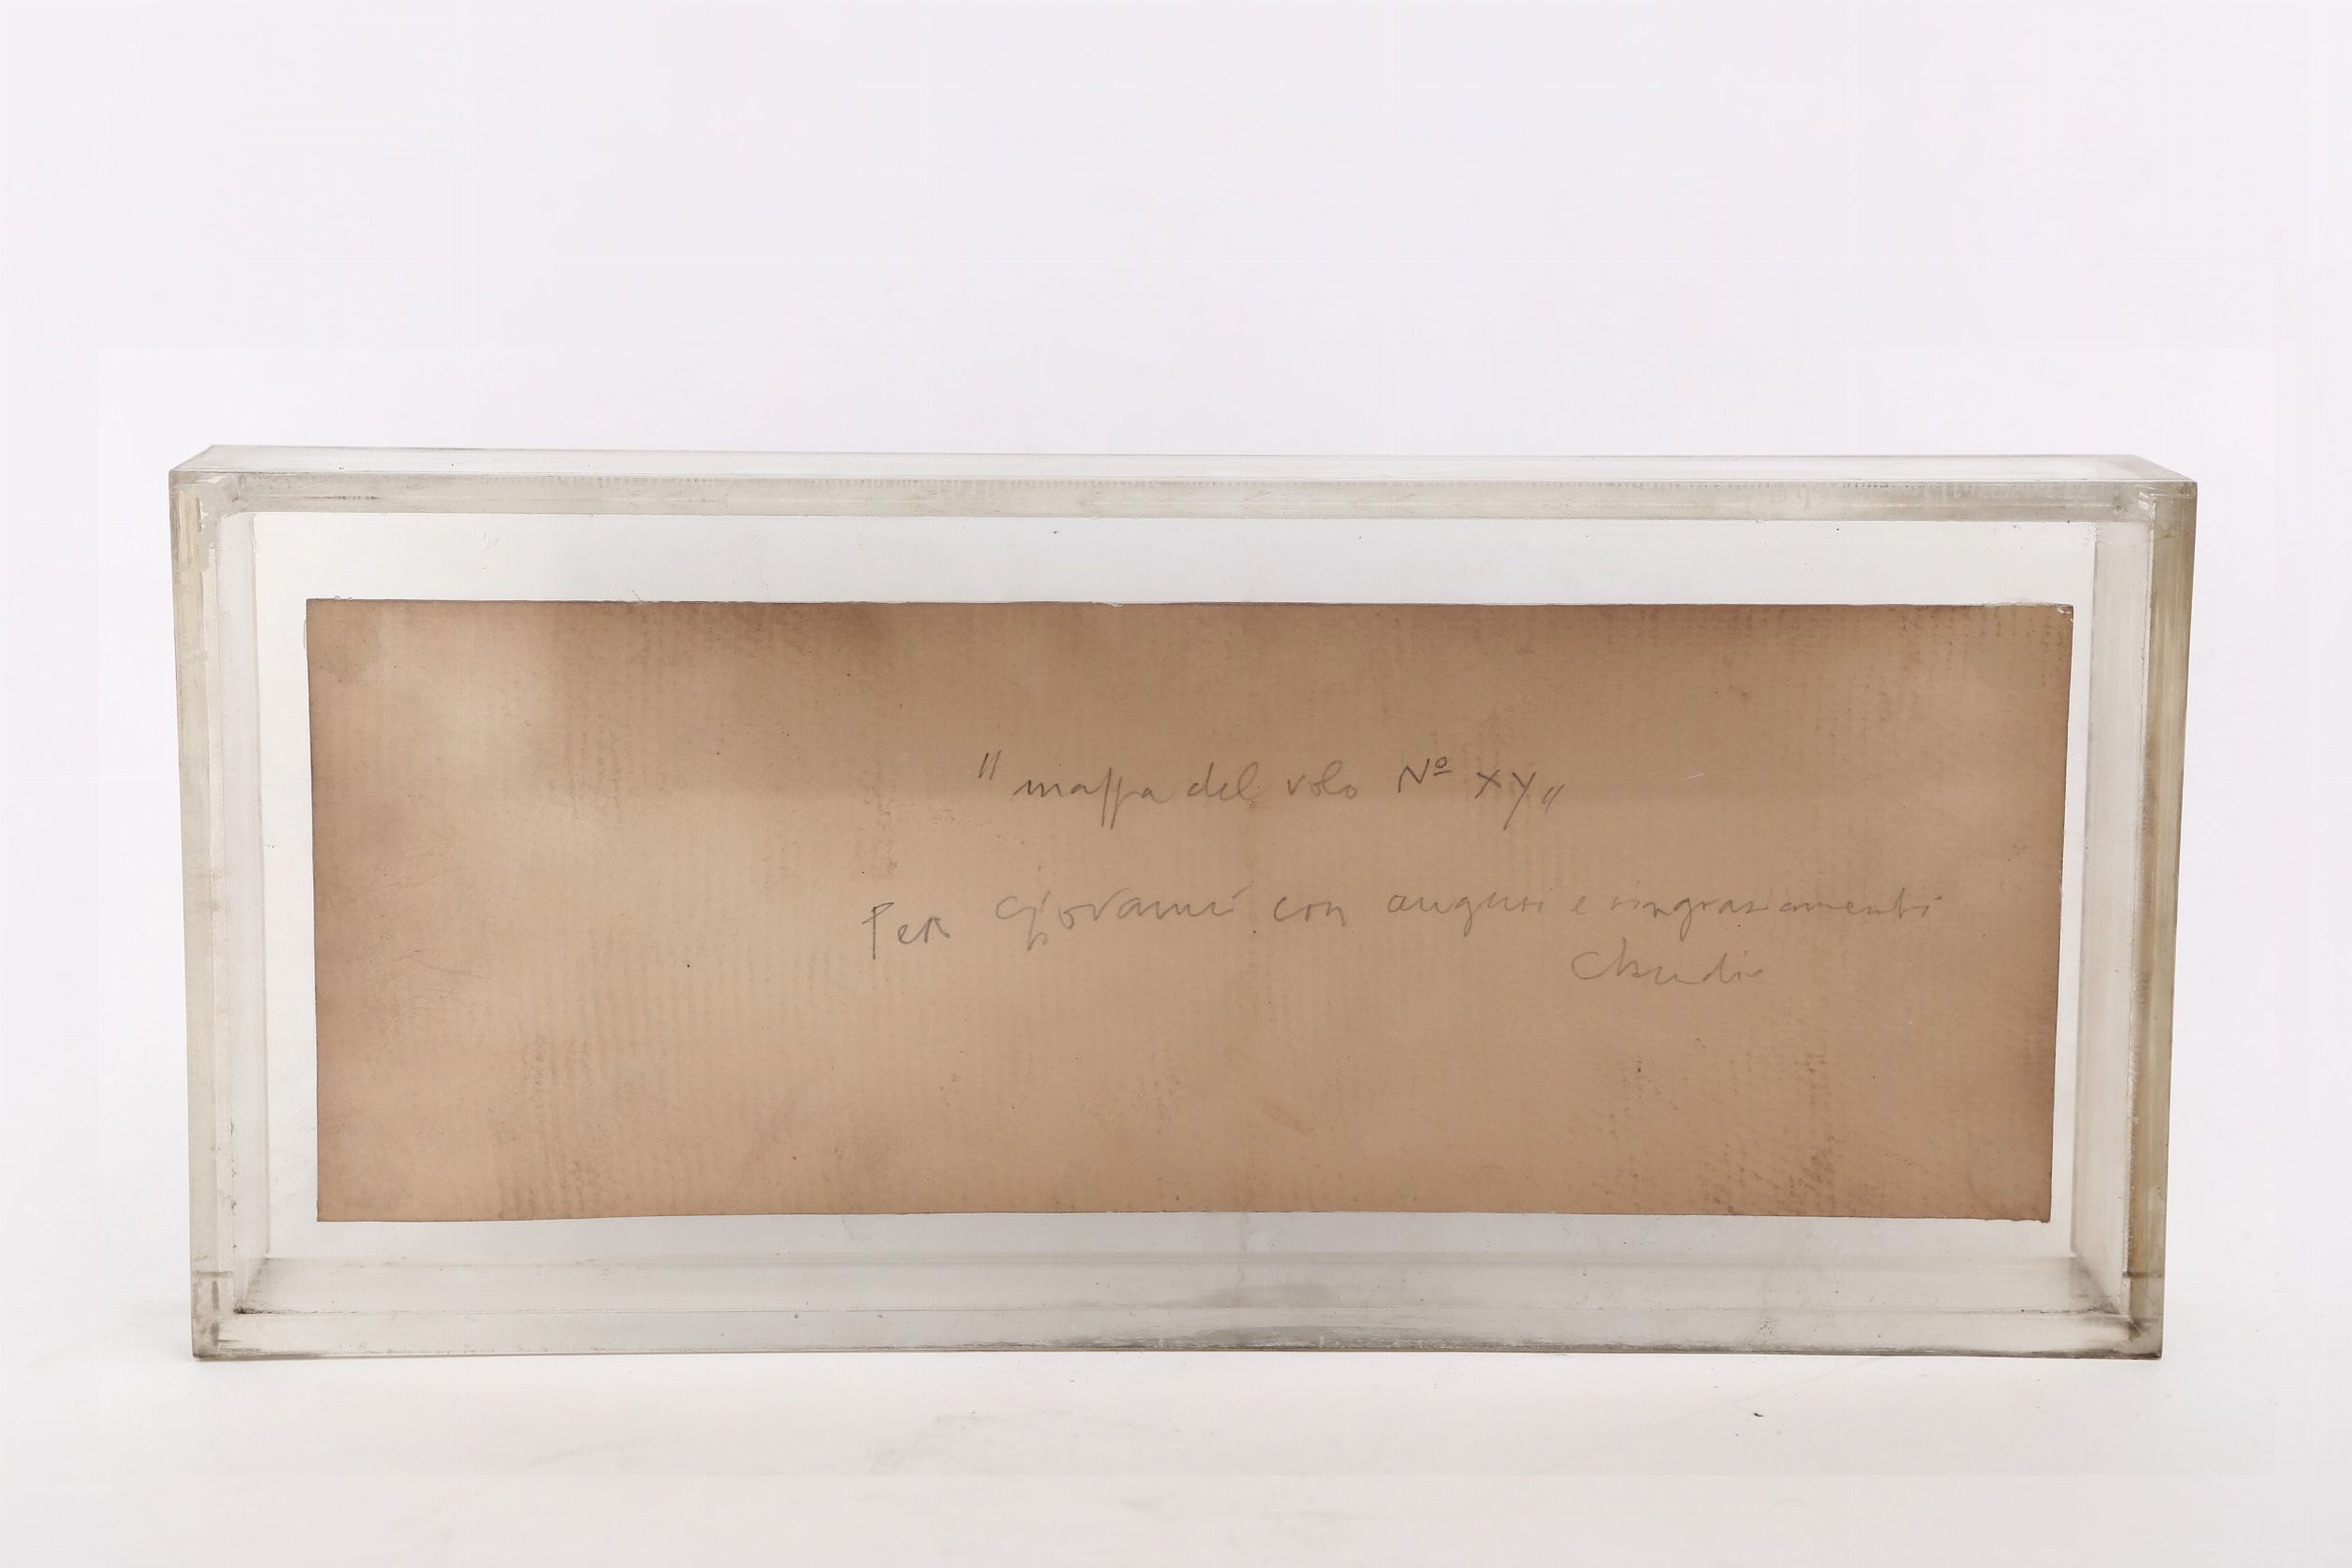 "mappa del volo Nº XY"
Per Giovanni con auguri e ringraziamenti
Claudio